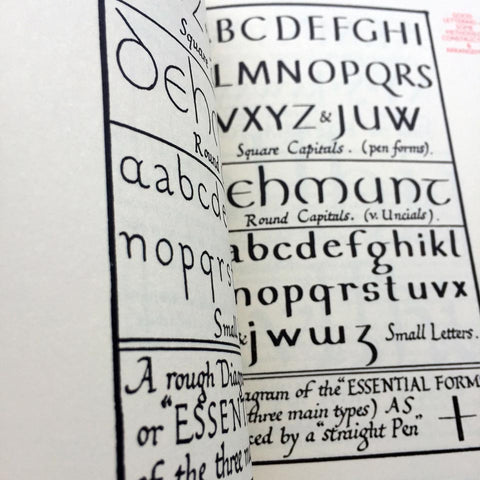 Square
dehm
Round
aabcde
nopqrs
Small
A rough Diag
or "ESSEN
of the three m
ABCDEFGHI
LMNOPQRS
VXYZ & JUW
Square Capitals. (pen forms).
ehmunt
Round Capitals. (v. Uncials).
abcdefghikl
nopqrstuvx
jwwz Small Letters.
agram of the "ESSENTIAL FORM
three main types) AS
ced by a "straight Pen"
GOOD
LETTERING—
SOME
METHODS O
CONSTRUCT
&
ARRANGEM